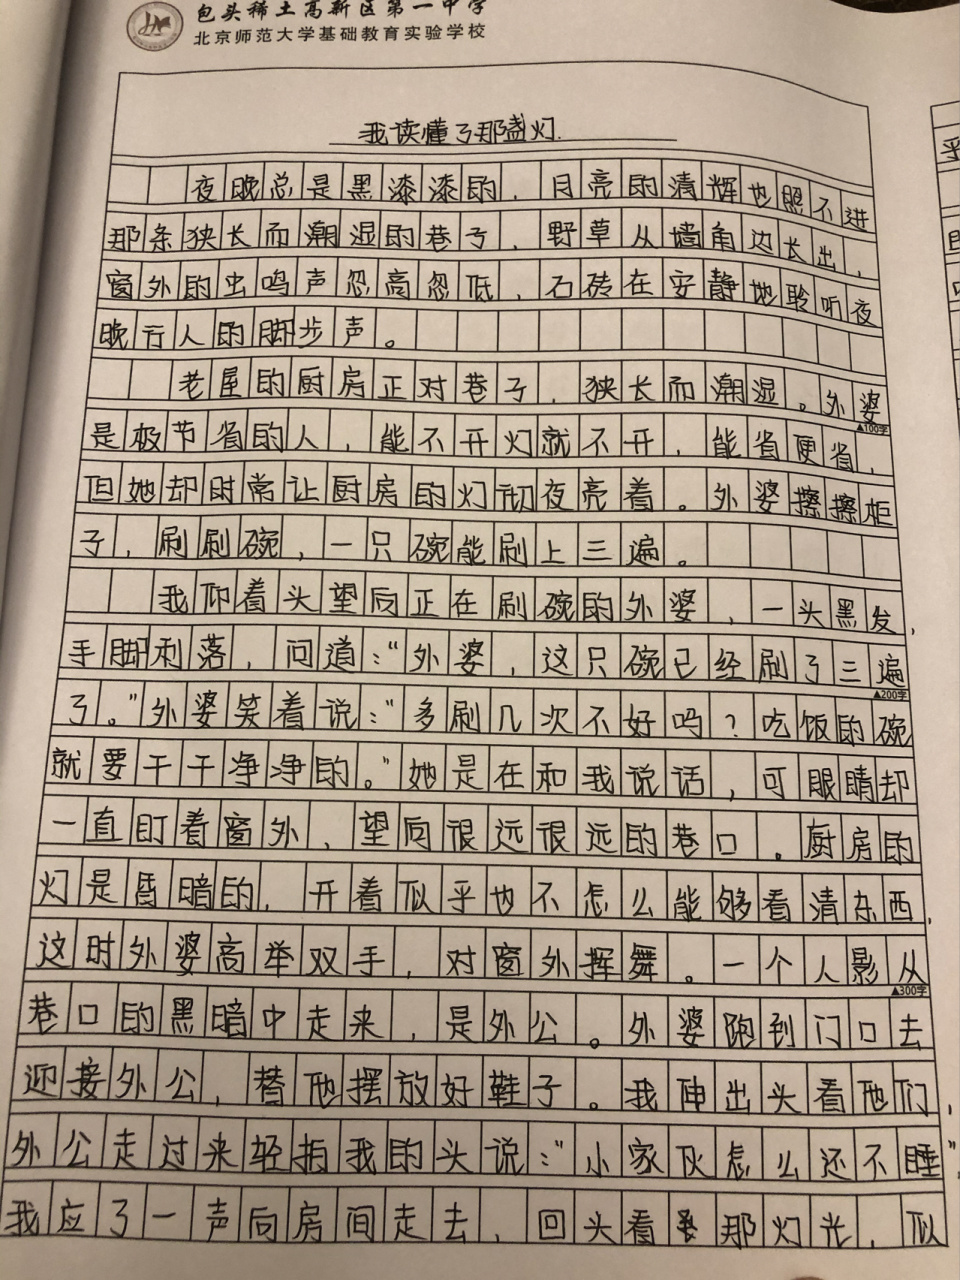 包头稀土高新区第一中学
北京师范大学基础教育实验学校
我读懂了那盏灯.
夜晚总是黑漆漆的，月亮的清辉也照不进
那条狭长而潮湿的巷子，野草从墙角边长出，
窗外的虫鸣声忽高忽低，石砖在安静地聆听夜
晚行人的脚步声。
老屋的厨房正对巷子，狭长而潮湿。外婆
▲100字
是极节省的人，能不开灯就不开，能省便省，
但她却时常让厨房的灯彻夜亮着。外婆擦擦柜
子，刷刷碗，一只碗能刷上三遍。
我仰着头望向正在刷碗的外婆，一头黑发，
手脚利落，问道：“外婆，这只碗已经刷了三遍
▲200字
了。”外婆笑着说：“多刷几次不好吗？吃饭的碗
就要干干净净的。”她是在和我说话，可眼睛却
一直盯着窗外，望向很远很远的巷口。厨房的
灯是昏暗的，开着似乎也不怎么能够看清东西，
这时外婆高举双手，对窗外挥舞。一个人影从
▲300字
巷口的黑暗中走来，是外公。外婆跑到门口去
迎接外公，替他摆放好鞋子。我伸出头看他们，
外公走过来轻拍我的头说：“小家伙怎么还不睡”，
我应了一声向房间走去，回头看那灯光，似